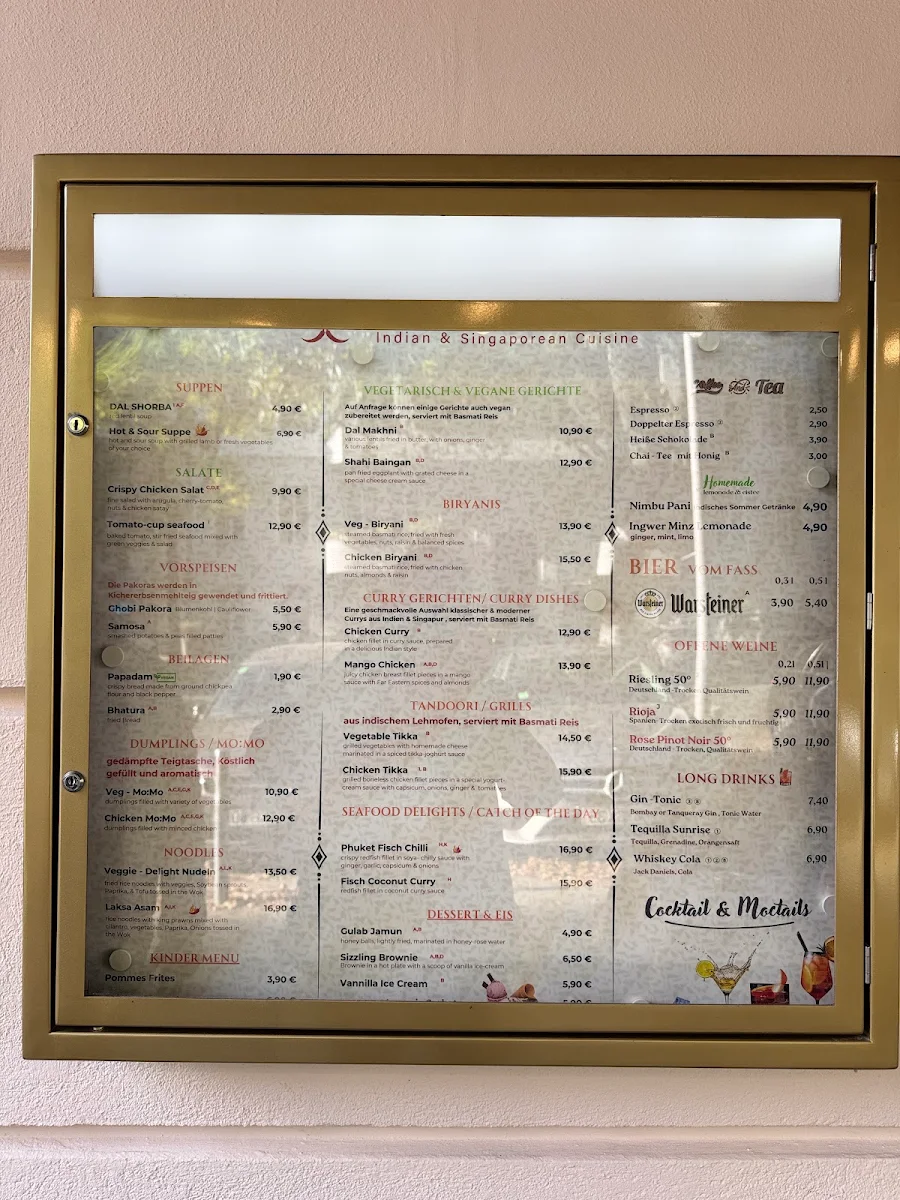 Indian & Singaporean Cuisine
SUPPEN
DAL SHORBA 4,90 €
Hot & Sour Suppe 6,90 €
hot and sour soup with grilled lamb or fresh vegetables
of your choice
SALATE
Crispy Chicken Salat C,D,E 9,90 €
fine salad with arrugula, cherry-tomato,
nuts & chicken satay
Tomato-cup seafood 12,90 €
baked tomato, stir fried seafood mixed with
green veggies & salad
VORSPEISEN
Die Pakoras werden in
Kichererbsenmehlteig gewendet und frittiert.
Ghobi Pakora Blumenkohl | Cauliflower 5,50 €
Samosa A 5,90 €
smashed potatoes & peas filled patties
BEILAGEN
Papadam 1,90 €
crispy bread made from ground chickpea
flour and black pepper
Bhatura A,B 2,90 €
fried Bread
DUMPLINGS / MO:MO
gedämpfte Teigtasche, Köstlich
gefüllt und aromatisch
Veg - Mo:Mo 10,90 €
dumplings filled with variety of vegetables
Chicken Mo:Mo 12,90 €
dumplings filled with minced chicken
NOODLES
Veggie - Delight Nudeln 13,50 €
fried rice noodles with veggies, Soybean sprouts
Paprika, & Tofu tossed in the Wok
Laksa Asam 16,90 €
rice noodles with king prawns mixed with
cilantro, vegetables, Paprika, Onions tossed in
the Wok
KINDER MENU
Pommes Frites 3,90 €
VEGETARISCH & VEGANE GERICHTE
Auf Anfrage können einige Gerichte auch vegan
zubereitet werden, serviert mit Basmati Reis
Dal Makhni B 10,90 €
various lentils fried in butter, with onions, ginger
& tomatoes
Shahi Baingan B,D 12,90 €
pan fried eggplant with grated cheese in a
special cheese cream sauce
BIRYANIS
Veg - Biryani B,D 13,90 €
steamed basmati rice, fried with fresh
vegetables, nuts, raisin & balanced spices
Chicken Biryani B,D 15,50 €
steamed basmati rice, fried with chicken,
nuts, almonds & raisin
CURRY GERICHTEN/ CURRY DISHES
Eine geschmackvolle Auswahl klassischer & moderner
Currys aus Indien & Singapur , serviert mit Basmati Reis
Chicken Curry 12,90 €
chicken fillet in curry sauce, prepared
in a delicious Indian style
Mango Chicken A,B,D 13,90 €
juicy chicken breast fillet pieces in a mango
sauce with Far Eastern spices and almonds
TANDOORI / GRILLS
aus indischem Lehmofen, serviert mit Basmati Reis
Vegetable Tikka B 14,50 €
grilled vegetables with homemade cheese
marinated in a spiced tikka-joghurt sauce
Chicken Tikka 15,90 €
grilled boneless chicken fillet pieces in a special yogurt
cream sauce with capsicum, onions, ginger & tomatoes
SEAFOOD DELIGHTS / CATCH OF THE DAY
Phuket Fisch Chilli 16,90 €
crispy redfish fillet in soya- chilly sauce with
ginger, garlic, capsicum & onions
Fisch Coconut Curry H 15,90 €
redfish fillet in coconut curry sauce
DESSERT & EIS
Gulab Jamun A,B 4,90 €
honey balls, lightly fried, marinated in honey-rose water
Sizzling Brownie A,B,D 6,50 €
Brownie in a hot plate with a scoop of vanilla ice-cream
Vannilla Ice Cream B 5,90 €
Coffee And Tea
Espresso ② 2,50
Doppelter Espresso 2,90
Heiße Schokolade B 3,90
Chai - Tee mit Honig B 3,00
Homemade
lemonade & eistee
Nimbu Pani indisches Sommer Getränke 4,90
Ingwer Minz Lemonade 4,90
ginger, mint, limo
BIER VOM FASS
0,3 l 0,5 l
Warsteiner Warsteiner A 3,90 5,40
OFFENE WEINE
0,2l 0,5l
Riesling 50° 5,90 11,90
Deutschland -Trocken, Qualitätswein
Rioja 5,90 11,90
Spanien- Trocken exotisch frisch und fruchtig
Rose Pinot Noir 50° 5,90 11,90
Deutschland - Trocken, Qualitätswein
LONG DRINKS
Gin -Tonic 7,40
Bombay or Tanqueray Gin , Tonic Water
Tequilla Sunrise ① 6,90
Tequilla, Grenadine, Orangensaft
Whiskey Cola 6,90
Jack Daniels, Cola
Cocktail & Moctails